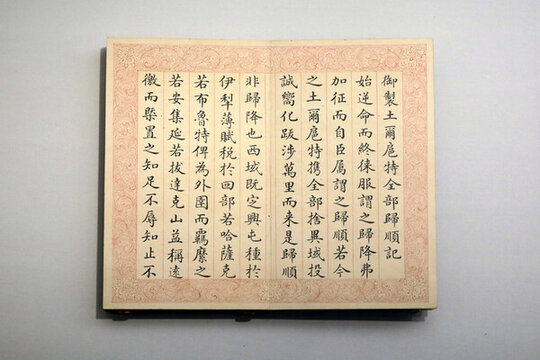 御製土爾扈特全部歸順記
始逆命而終徠服謂之歸降弗
加征而自臣屬謂之歸順若今
之土爾扈特携全部捨異域投
誠嚮化跋涉萬里而来是歸順
非歸降也西域既定興屯種於
伊犁薄賦税於回部若哈薩克
若布魯特俾為外圉而羈縻之
若安集延若拔達克山益稱遠
徼而槩置之知足不辱知止不